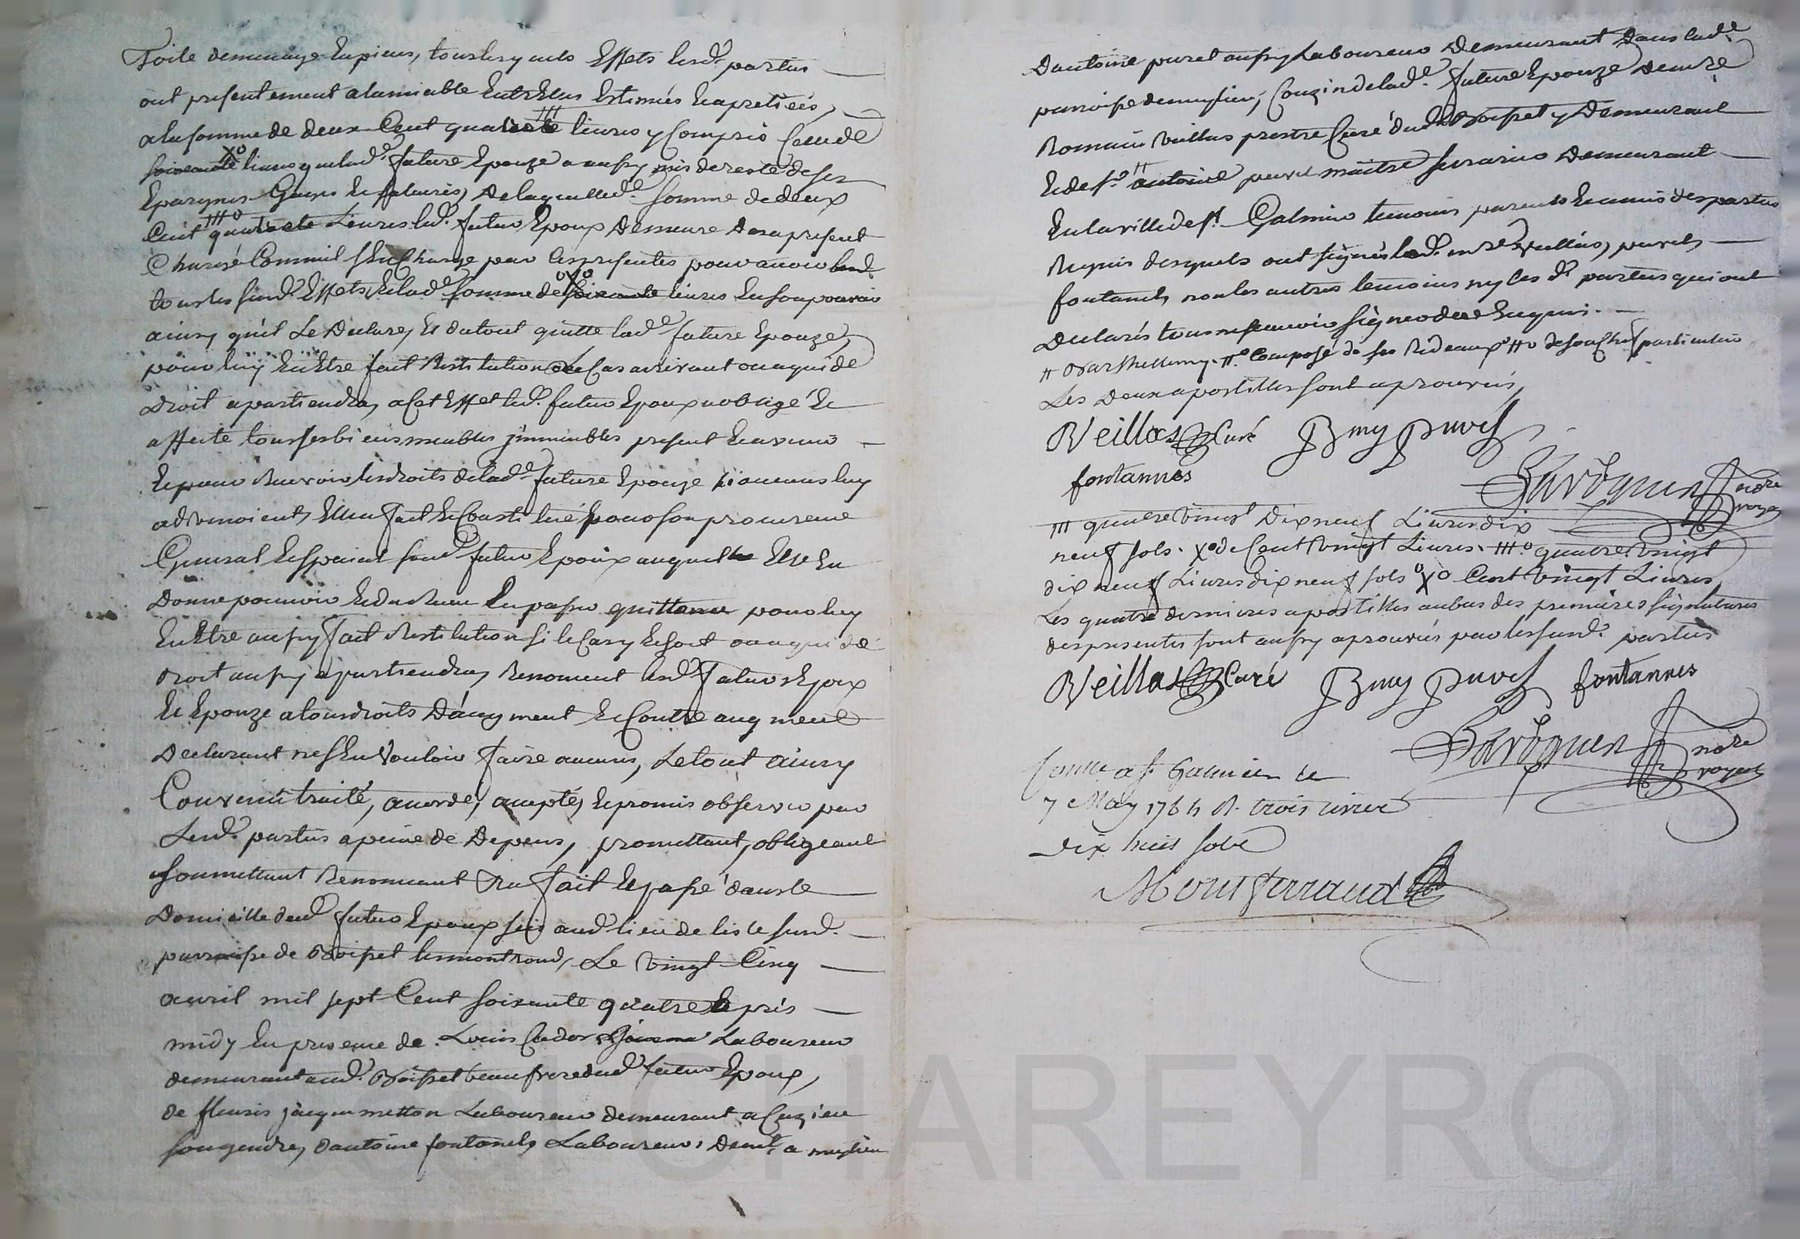 Toile de menage en pieces, tous lesquels Effets lesd. parties
ont presentement alamiable Entre Elles Estimés Et apretiées,
ala somme de deux Cent quarante livres y Compris Celle de
soixante livres que lad.e future Epouze a aussy mis de reste de ses
Epargnes Gages Et salaires, De laquelle d.e somme de deux
Cent quarante Livres led. futur Epoux Demeure Des apresent
Chargé Comme il s'en Charge par les presentes pour avoir lesd.
tous les susd. Effets, Et lad.e somme de soixante livres En son pouvoir
ainsy qu'il Le Declare, Et du tout quitte lad.e future Epouze,
pour luy En Etre fait Restitution Le Cas arrivant ou a qui de
Droit apartiendra, a Cet Effet led. futur Epoux a obligé Et
affecté tous ses biens meubles jmmeubles present Et avenir
Et pour Recevoir les droits de lad.e future Epouze si aucuns luy
advenoient, Elle fait Et Constitué pour son procureur
General Et special sond. futur Epoux auquel Elle En
Donne pouvoir Et du Recu En passer quittance pour luy
En Etre aussy fait Restitution si le Cas y Echoit ou a qui de
droit aussy apartiendra, Renoncent lesd. futurs Epoux
Et Epouze a tous droits D'augment Et Contre augment
Declarant n'en Vouloir faire aucuns, Le tout ainsy
Convenu traité, accordé, accepté, Et promis observer par
Lesd. parties a peine de Depens, promettant, obligeant
soumettant Renoncant fait Et passé dans le
Domicille dud. futur Epoux sis aud. lieu de susd.
parroisse de Boisset lesmontrond, Le Vingt Cinq
avril mil sept Cent soixante quatre aprés
midy En presence de Louis Laboureur
demeurant aud. Boisset beaufrere dud. futur Epoux,
de fleuris jacques metton Laboureur demeurant a Cuzieu
son gendre, d'antoine fontannes Laboureur, Demt. a
D'antoine puvet aussy Laboureur Demeurant Dans lad.e
parroisse de Couzin de lad.e future Epouze De mre
Romain Veillas prestre Curé dud. Boisset y Demeurant
Et de sr. antoine puvel maitre serrurier Demeurant
En la ville de st. Galmier temoins parents Et amis des parties
Requis desquels ont signés led. mre Veillas, puvel,
fontannes non les autres temoins ny les d. parties qui ont
Declarés tous ne scavoir signer de ce Enquis.
# Barthellemy. #o Composé de ses Rideaux #o particulier
Les Deux apostilles sont aprouvés,
RVeillas Curé Bmy puvel
fontannes
notre royal
### quatre Vingt Dix neuf Livres dix
neuf sols. Xo de Cent Vingt Livres. ###o quatre Vingt
dix neuf Livres dix neuf sols oXo Cent Vingt Livres,
Les quatre dernieres apostilles aubas des premieres signatures
des presentes sont aussy aprouvés par les susd. parties
RVeillas Curé Bmy puvel fontannes
notre royal
Conlle a st Galmier le
7 May 1764 R. trois livres
dix huit sols
Montferrand
CHAREYRON